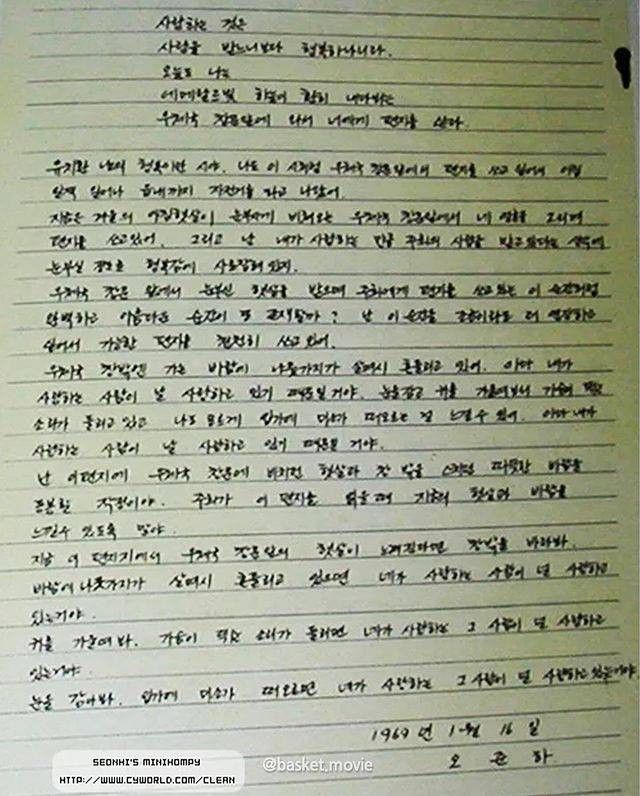 사랑하는 것은
사랑을 받느니보다 행복하나니라.
오늘도 나는
에메랄드빛 하늘이 환히 내다뵈는
우체국 창문앞에 와서 너에게 편지를 쓴다.
유치환 님의 행복이란 시야. 나도 이 시처럼 우체국 창문앞에서 편지를 쓰고 싶어서 아침
일찍 일어나 읍내까지 자전거를 타고 나왔어.
지금은 겨울의 아침햇살이 눈부시게 비쳐오는 우체국 창문앞에서 네 얼굴을 그리며
편지를 쓰고있어. 그리고 난 내가 사랑하는 만큼 주희의 사랑을 받고있다는 생각에
눈부신 정도로 행복감에 사로잡혀 있지.
우체국 창문 앞에서 눈부신 햇살을 받으며 주희에게 편지를 쓰고 있는 이 순간처럼
완벽하고 아름다운 순간이 또 존재할까? 난 이 순간을 조금이라도 더 연장하고
싶어서 가능한 편지를 천천히 쓰고 있어.
우체국 창밖엔 가는 바람에 나뭇가지가 살며시 흔들리고 있어. 아마 내가
사랑하는 사람이 날 사랑하고 있기 때문일거야. 눈을감고 귀를 기울여보니 가슴이 뛰는
소리가 들리고 있고 나도 모르게 입가에 미소가 떠오르는 걸 느낄수 있어. 아마 내가
사랑하는 사람이 날 사랑하고 있기 때문일 거야.
난 이편지에 우체국 창문에 비치던 햇살과 창 밖을 스치던 따뜻한 바람을
동봉할 작정이야. 주희가 이 편지를 읽을때 지금의 햇살과 바람을
느낄수 있도록 말야.
지금 이 편지에서 우체국 창문앞의 햇살이 느껴진다면 창밖을 바라봐.
바람에 나뭇가지가 살며시 흔들리고 있으면 네가 사랑하는 사람이 널 사랑하고
있는거야.
귀를 기울여 봐. 가슴이 뛰는 소리가 들리면 네가 사랑하는 그 사람이 널 사랑하고
있는거야.
눈을 감아봐. 입가에 미소가 떠오르면 네가 사랑하는 그 사람이 널 사랑하고 있는거야.
1969년 1월 16일
오 준 하
SEONHI'S MINIHOMPY
HTTP://WWW.CYWORLD.COM/CLEAN
@basket.movie